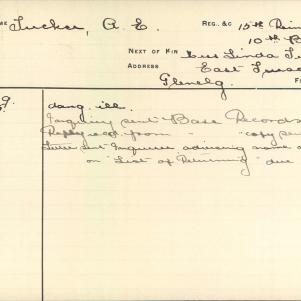 ME Tucker, A. E. REG., &C 15th Rein
10th B
NEXT OF KIN Miss Linda Tu
ADDRESS East Terrac
Glenelg. F
9. dang. ill.
Inquiry sent Base Records
Reply recd. from " copy sen
Letter sent Inquirer advising name a
on "List of Returning" due